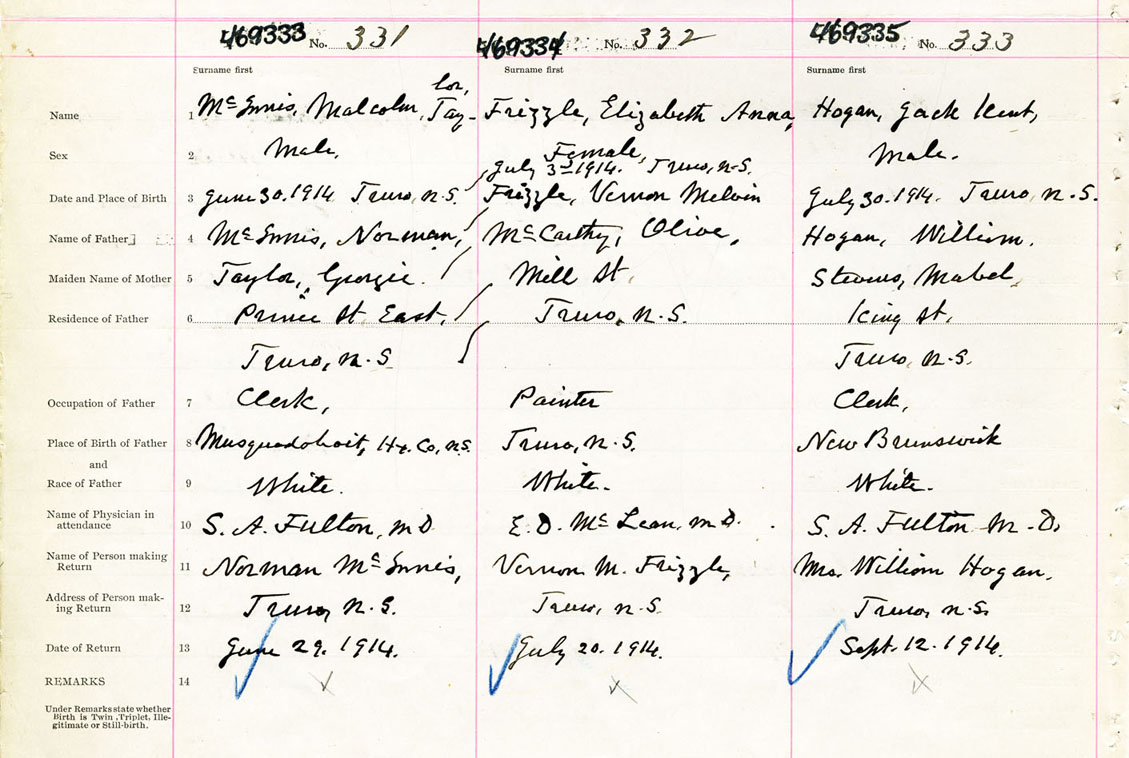 469333 No. 331 469334 No. 332 469335 No. 333
Surname first Surname first Surname first
lor,
Name 1 McInnis, Malcolm, Tay- Frizzle, Elizabeth Anna, Hogan, Jack Kent,
Sex 2 Male, Female, Male.
July 3rd 1914. Truro, N.S.
Date and Place of Birth 3 June 30. 1914 Truro, N.S. Frizzle, Vernon Melvin July 30. 1914. Truro, N.S.
Name of Father 4 McInnis, Norman, McCarthy, Olive, Hogan, William.
Maiden Name of Mother 5 Taylor, Georgie. Mill St. Stevens, Mabel,
Residence of Father 6 Prince St. East, Truro, N.S. King St,
Truro, N.S. Truro, N.S.
Occupation of Father 7 Clerk, Painter Clerk,
Place of Birth of Father 8 Musquodoboit, Hx. Co, N.S. Truro, N.S. New Brunswick
and
Race of Father 9 White. White. White.
Name of Physician in
attendance 10 S. A. Fulton, M.D. E. D. McLean, M.D. S. A. Fulton M.D,
Name of Person making
Return 11 Norman McInnis, Vernon M. Frizzle, Mrs. William Hogan.
Address of Person mak-
ing Return 12 Truro, N.S. Truro, N.S. Truro, N.S.
Date of Return 13 June 29. 1914. July 20. 1914. Sept. 12. 1914.
REMARKS 14 x x x
Under Remarks state whether
Birth is Twin, Triplet, Ille-
gitimate or Still-birth.